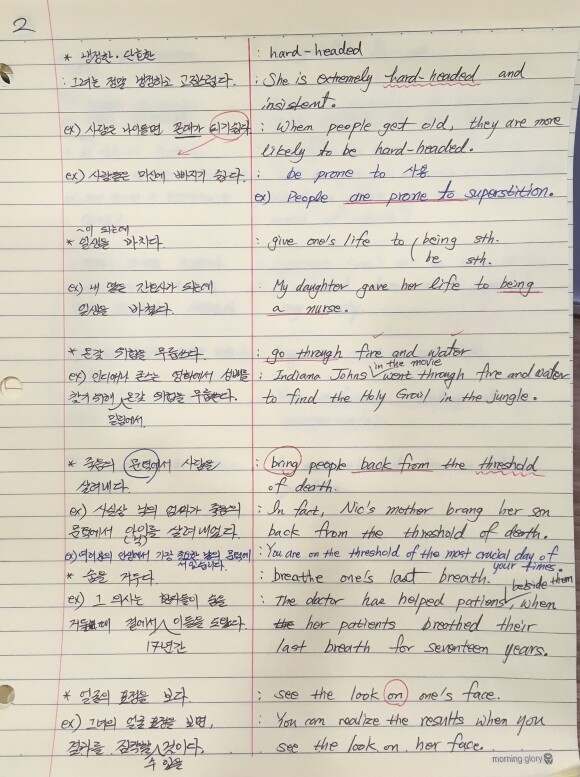 2
* 냉정한·단호한 : hard-headed
: 그녀는 정말 냉정하고 고집스럽다. : She is extremely hard-headed and
insistent.
ex) 사람은 나이들면 꼰대가 되기 쉽다. : When people get old, they are more
likely to be hard-headed.
ex) 사람들은 미신에 빠지기 쉽다. : be prone to 사용
ex) People are prone to superstition.
~이 되는데
* 일생을 바치다. : give one's life to ( being sth.
be sth.
ex) 내 딸은 간호사가 되는데 : My daughter gave her life to being
일생을 바쳤다. a nurse.
* 온갖 위험을 무릅쓰다. : go through fire and water
in the movie
ex) 인디아나 존스는 영화에서 성배를 : Indiana Johns went through fire and water
찾기 위해 온갖 위험을 무릅쓴다. to find the Holy Grail in the jungle.
밀림에서
* 죽음의 문턱에서 사람을 : bring people back from the threshold
살려내다. of death.
ex) 사실상 닉의 엄마가 죽음의 : In fact, Nic's mother brang her son
문턱에서 아들을 살려내었다. back from the threshold of death.
(닉)
ex) 여러분의 인생에서 가장 중요한 날의 문턱에 : You are on the threshold of the most crucial day of
서 있습니다. your times.
* 숨을 거두다. : breathe one's last breath.
beside them
ex) 그 의사는 환자들이 숨을 : The doctor has helped patients, when
거둘때 곁에서 이들을 도왔다. her patients breathed their
17년간 last breath for seventeen years.
* 얼굴의 표정을 보다. : see the look on one's face.
ex) 그녀의 얼굴 표정을 보면, : You can realize the results when you
결과를 짐작할 것이다. see the look on her face.
수 있을
morning glory